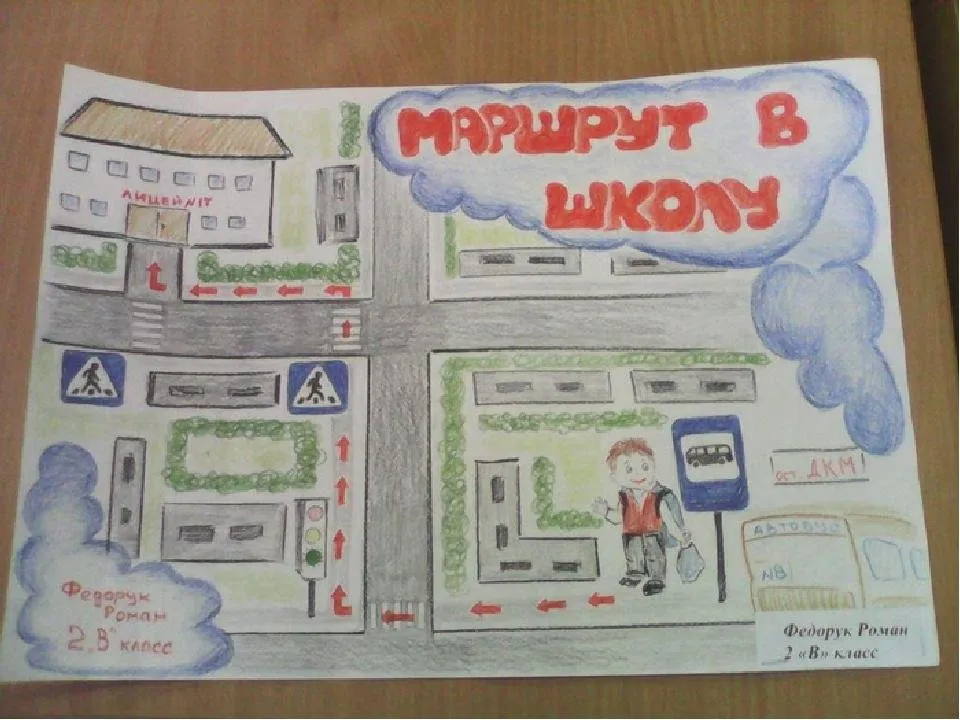 МАРШРУТ В
ШКОЛУ
ЛИЦЕЙ №1
ост ДКМ
АВТОБУС
№8
Федорук
Роман
2 „В" класс
Федорук Роман
2 «В» класс